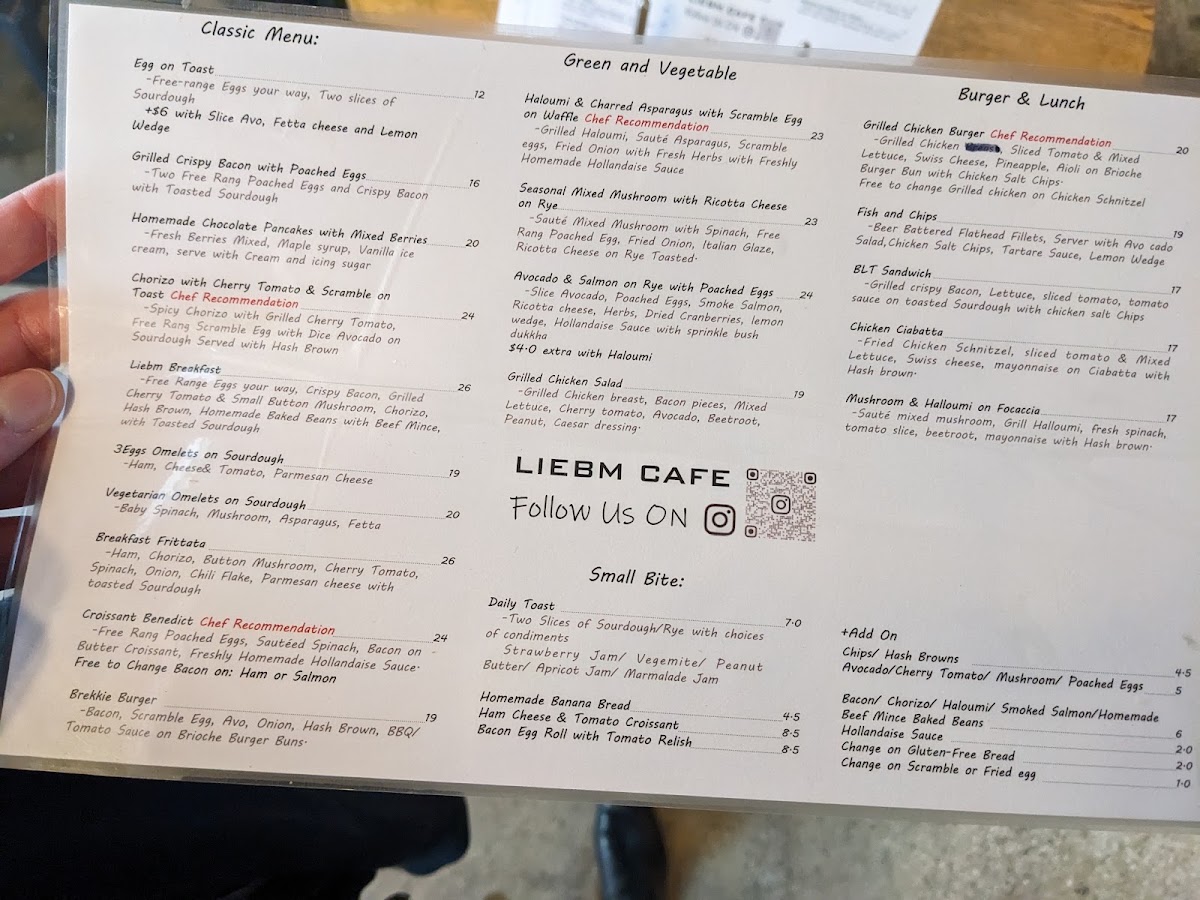 LIEBM CAFE
Classic Menu:
Egg on Toast 12
-Free-range Eggs your way, Two slices of
Sourdough
+$6 with Slice Avo, Fetta cheese and Lemon
Wedge
Grilled Crispy Bacon with Poached Eggs 16
-Two Free Rang Poached Eggs and Crispy Bacon
with Toasted Sourdough
Homemade Chocolate Pancakes with Mixed Berries 20
-Fresh Berries Mixed, Maple syrup, Vanilla ice
cream, serve with Cream and icing sugar
Chorizo with Cherry Tomato & Scramble on
Toast Chef Recommendation 24
-Spicy Chorizo with Grilled Cherry Tomato,
Free Rang Scramble Egg with Dice Avocado on
Sourdough Served with Hash Brown
Liebm Breakfast 26
-Free Range Eggs your way, Crispy Bacon, Grilled
Cherry Tomato & Small Button Mushroom, Chorizo,
Hash Brown, Homemade Baked Beans with Beef Mince,
with Toasted Sourdough
3Eggs Omelets on Sourdough 19
-Ham, Cheese& Tomato, Parmesan Cheese
Vegetarian Omelets on Sourdough 20
-Baby Spinach, Mushroom, Asparagus, Fetta
Breakfast Frittata 26
-Ham, Chorizo, Button Mushroom, Cherry Tomato,
Spinach, Onion, Chili Flake, Parmesan cheese with
toasted Sourdough
Croissant Benedict Chef Recommendation 24
-Free Rang Poached Eggs, Sautéed Spinach, Bacon on
Butter Croissant, Freshly Homemade Hollandaise Sauce.
Free to Change Bacon on: Ham or Salmon
Brekkie Burger 19
-Bacon, Scramble Egg, Avo, Onion, Hash Brown, BBQ/
Tomato Sauce on Brioche Burger Buns.
Green and Vegetable
Haloumi & Charred Asparagus with Scramble Egg
on Waffle Chef Recommendation 23
-Grilled Haloumi, Sauté Asparagus, Scramble
eggs, Fried Onion with Fresh Herbs with Freshly
Homemade Hollandaise Sauce
Seasonal Mixed Mushroom with Ricotta Cheese
on Rye 23
-Sauté Mixed Mushroom with Spinach, Free
Rang Poached Egg, Fried Onion, Italian Glaze,
Ricotta Cheese on Rye Toasted.
Avocado & Salmon on Rye with Poached Eggs 24
-Slice Avocado, Poached Eggs, Smoke Salmon,
Ricotta cheese, Herbs, Dried Cranberries, lemon
wedge, Hollandaise Sauce with sprinkle bush
dukkha
$4.0 extra with Haloumi
Grilled Chicken Salad 19
-Grilled Chicken breast, Bacon pieces, Mixed
Lettuce, Cherry tomato, Avocado, Beetroot,
Peanut, Caesar dressing.
LIEBM CAFE
Follow Us ON
Small Bite:
Daily Toast 7.0
-Two Slices of Sourdough/Rye with choices
of condiments
Strawberry Jam/ Vegemite/ Peanut
Butter/ Apricot Jam/ Marmalade Jam
Homemade Banana Bread 4.5
Ham Cheese & Tomato Croissant 8.5
Bacon Egg Roll with Tomato Relish 8.5
Burger & Lunch
Grilled Chicken Burger Chef Recommendation 20
-Grilled Chicken, Sliced Tomato & Mixed
Lettuce, Swiss Cheese, Pineapple, Aioli on Brioche
Burger Bun with Chicken Salt Chips.
Free to change Grilled chicken on Chicken Schnitzel
Fish and Chips 19
-Beer Battered Flathead Fillets, Server with Avo cado
Salad,Chicken Salt Chips, Tartare Sauce, Lemon Wedge
BLT Sandwich 17
-Grilled crispy Bacon, Lettuce, sliced tomato, tomato
sauce on toasted Sourdough with chicken salt Chips
Chicken Ciabatta 17
-Fried Chicken Schnitzel, sliced tomato & Mixed
Lettuce, Swiss cheese, mayonnaise on Ciabatta with
Hash brown.
Mushroom & Halloumi on Focaccia 17
-Sauté mixed mushroom, Grill Halloumi, fresh spinach,
tomato slice, beetroot, mayonnaise with Hash brown.
+Add On
Chips/ Hash Browns 4.5
Avocado/Cherry Tomato/ Mushroom/ Poached Eggs 5
Bacon/ Chorizo/ Haloumi/ Smoked Salmon/Homemade
Beef Mince Baked Beans 6
Hollandaise Sauce 2.0
Change on Gluten-Free Bread 2.0
Change on Scramble or Fried egg 1.0